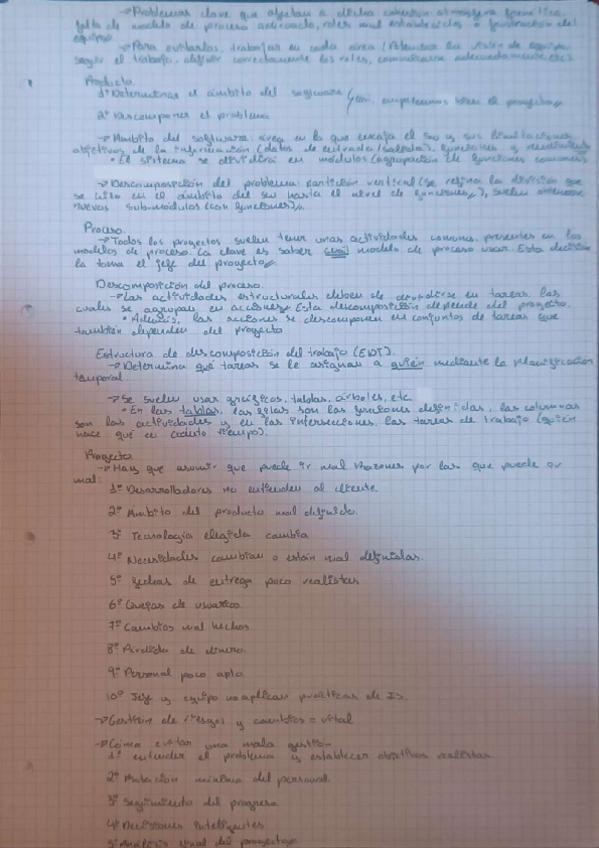 → Problemas clave que afectan a dicha cohesión: atmósfera frenética,
falta de modelo de proceso adecuado, roles mal establecidos o frustración del
equipo
→ Para evitarlas, trabajar en cada área (
según el trabajo, definir correctamente los roles, comunicarse adecuadamente, etc).
Producto.
1º Determinar el ámbito del software
2º Descomponer el problema
→ Ámbito del software: área en la que encaja el sw y sus limitaciones,
objetivos de la información (datos de entrada/salida), funciones y rendimiento
• El sistema se dividirá en módulos (agrupación de funciones comunes
→ Descomposición del problema: partición vertical (se refina la división que
se hizo en el ámbito del sw hasta el nivel de funciones), suelen
nuevos submódulos (con funciones)
Proceso.
→ Todos los proyectos suelen tener unas actividades comunes, presentes en los
modelos de proceso. La clave es saber cuál modelo de proceso usar. Esta decisión
la toma el jefe del proyecto
Descomposición del proceso.
→ Las actividades estructurales deben de dividirse en tareas, las
cuales se agrupan en acciones. Esta descomposición depende del proyecto.
• Además, las acciones se descomponen en conjuntos de tareas que
también dependen del proyecto
Estructura de descomposición del trabajo (EDT).
→ Determina qué tareas se le asignan a quién mediante la planificación
temporal
→ Se suelen usar gráficos, tablas, árboles, etc
• En las tablas, las filas son las funciones definidas, las columnas
son las actividades y en las intersecciones, las tareas de trabajo (quién
hace qué en cuánto tiempo).
Proyecto
→ Hay que asumir que puede ir mal. Razones por las que puede ir
mal:
1º Desarrolladores no entienden al cliente.
2º Ámbito del producto mal definido.
3º Tecnología elegida cambia
4º Necesidades cambian o están mal definidas.
5º Fechas de entrega poco realistas
6º Quejas de usuarios
7º Cambios mal hechos
8º Pérdida de dinero.
9º Personal poco apto
10º Jefe y equipo no aplican prácticas de IS.
→ Gestión de riesgos y cambios = vital
→ Cómo evitar una mala gestión
1º entender el problema y establecer objetivos realistas
2º Rotación mínima del personal
3º Seguimiento del progreso
4º Decisiones inteligentes
5º Análisis final del proyecto